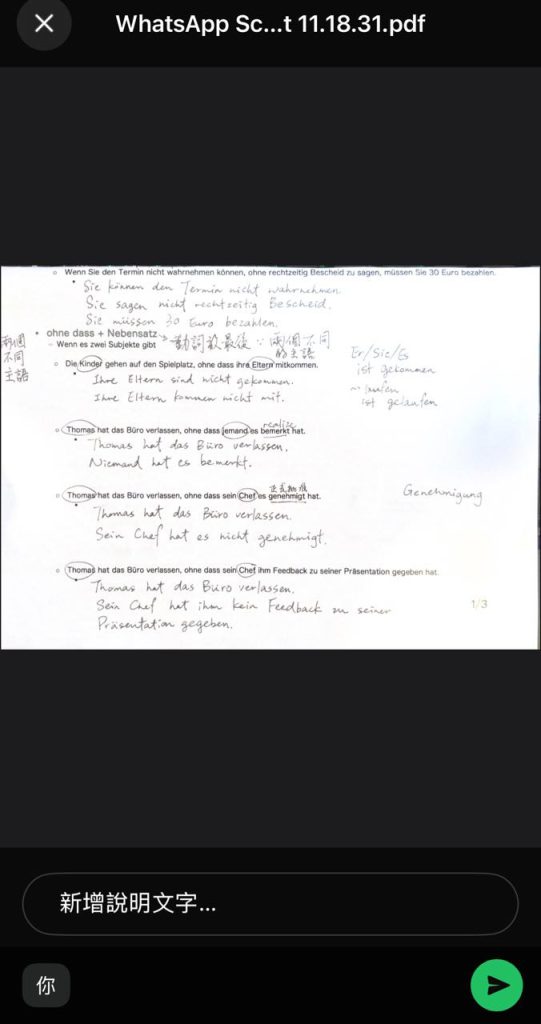 WhatsApp Sc...t 11.18.31.pdf
○ Wenn Sie den Termin nicht wahrnehmen können, ohne rechtzeitig Bescheid zu sagen, müssen Sie 30 Euro bezahlen.
• Sie können den Termin nicht wahrnehmen
Sie sagen nicht rechtzeitig Bescheid.
Sie müssen 30 Euro bezahlen.
• ohne dass + Nebensatz → 動詞放最後 ∵ 兩個不同的主語
兩個不同主語
- Wenn es zwei Subjekte gibt
○ Die Kinder gehen auf den Spielplatz, ohne dass ihre Eltern mitkommen.
• Ihre Eltern sind nicht gekommen.
Ihre Eltern kommen nicht mit.
Er/Sie/Es
ist gekommen
laufen
ist gelaufen
realize
○ Thomas hat das Büro verlassen, ohne dass jemand es bemerkt hat.
• Thomas hat das Büro verlassen.
Niemand hat es bemerkt.
正式批准
○ Thomas hat das Büro verlassen, ohne dass sein Chef es genehmigt hat.
Genehmigung
• Thomas hat das Büro verlassen.
Sein Chef hat es nicht genehmigt.
○ Thomas hat das Büro verlassen, ohne dass sein Chef ihm Feedback zu seiner Präsentation gegeben hat.
• Thomas hat das Büro verlassen.
Sein Chef hat ihm kein Feedback zu seiner
Präsentation gegeben.
1/3
新增說明文字...
你